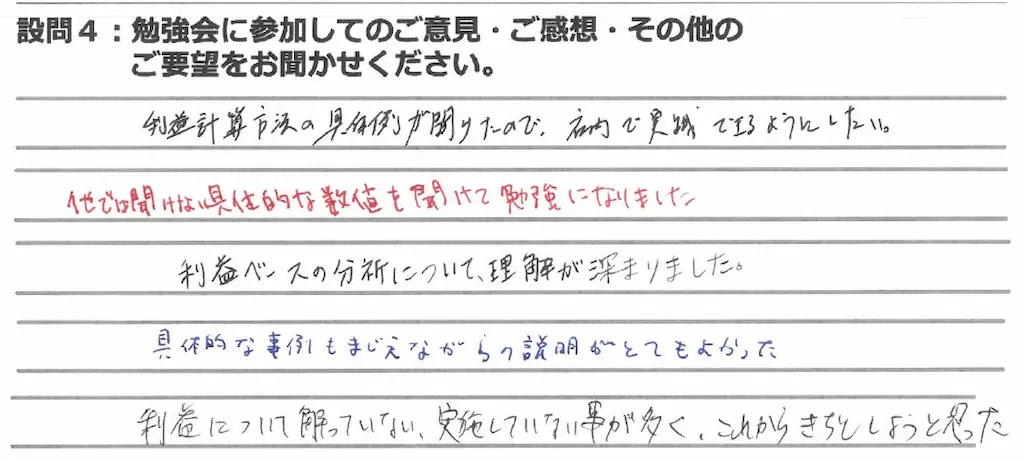 設問4：勉強会に参加してのご意見・ご感想・その他の
ご要望をお聞かせください。
利益計算方法の具体例が聞けたので、店内で実践できるようにしたい。
他では聞けない具体的な数値も聞けて勉強になりました
利益ベースの分析について、理解が深まりました。
具体的な事例もまじえながらの説明がとてもよかった
利益について解っていない、実施していない事が多く、これからきちんとしようと思った